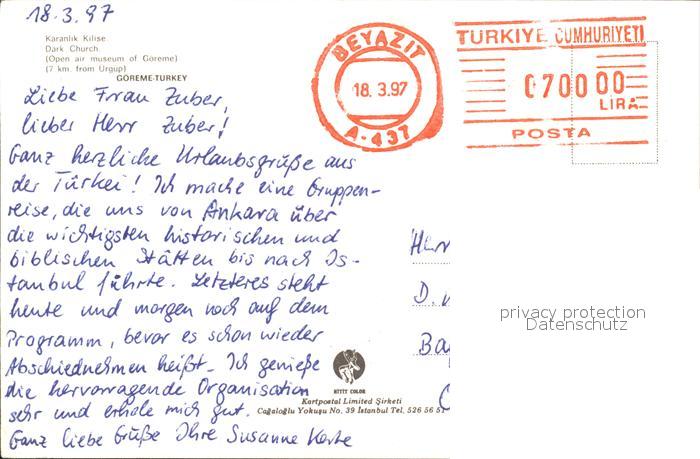 18.3.97
Karanlık Kilise.
Dark Church.
(Open air museum of Göreme)
(7 km. from Urgup)
GÖREME-TURKEY
Liebe Frau Zuber,
lieber Herr Zuber!
Ganz herzliche Urlaubsgrüße aus
der Türkei! Ich mache eine Gruppen-
reise, die uns von Ankara über
die wichtigsten historischen und
biblischen Stätten bis nach Is-
tanbul führte. Letzteres steht
heute und morgen noch auf dem
Programm, bevor es schon wieder
Abschiednehmen heißt. Ich genieße
die hervorragende Organisation
sehr und erhole mich gut.
Ganz liebe Grüße Ihre Susanne Korte
BEYAZIT
18.3.97
A-437
TÜRKİYE CUMHURİYETİ
070000
LIRA
POSTA
Herr
D.
Ba
privacy protection
Datenschutz
HITIT COLOR
Kartpostal Limited Şirketi
Cağaloğlu Yokuşu No. 39 İstanbul Tel. 526 56 5